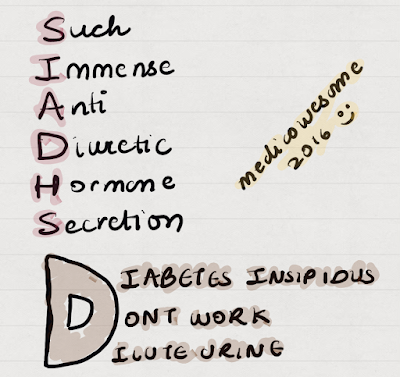 Such
Immense
Anti
Diuretic
Hormone
Secretion
medicowesome
2016
DIABETES INSIPIDUS
DONT WORK
DILUTE URINE